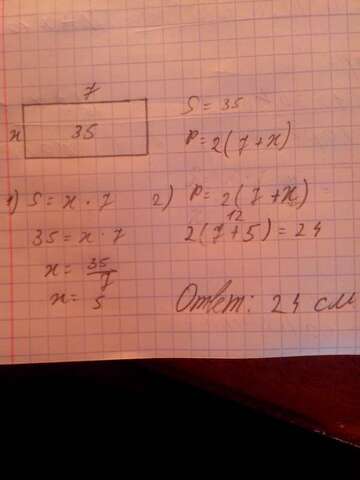 7
x 35
S = 35
P = 2(7+x)
1) S = x · 7
35 = x · 7
x = 35/7
x = 5
2) P = 2(7+x)
12
2(7+5) = 24
Ответ: 24 см